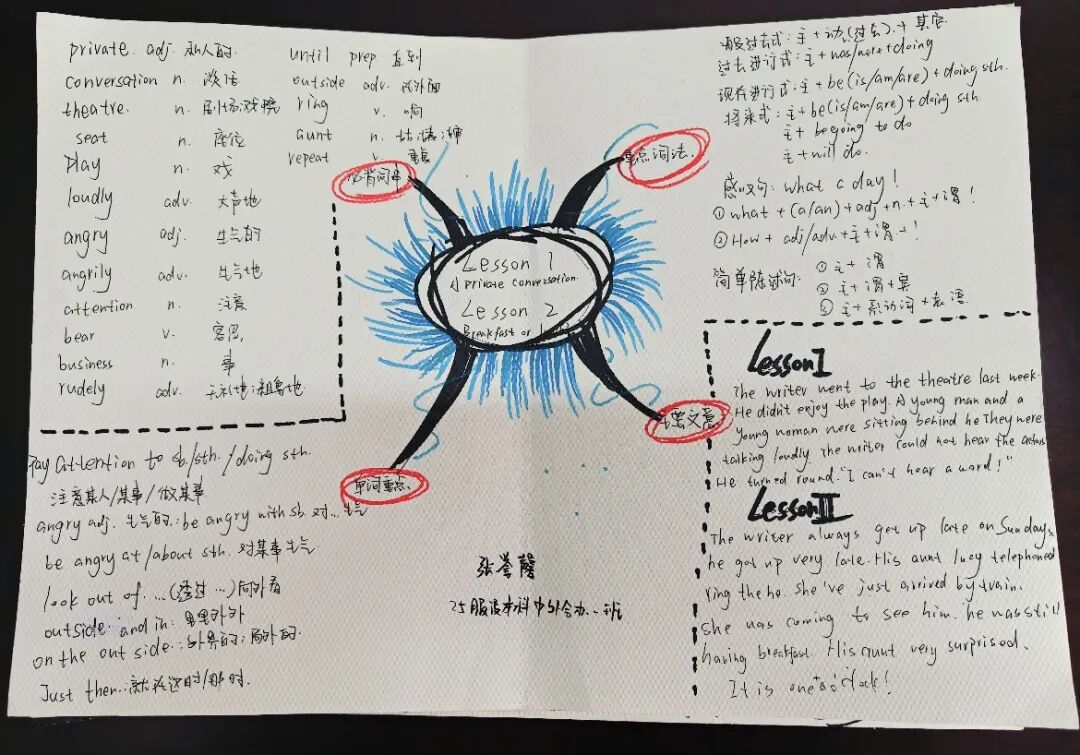 private. adj. 私人的.
conversation n. 谈话
theatre. n. 剧场.戏院
seat n. 座位
Play n. 戏
loudly adv. 大声地
angry adj. 生气的
angrily adv. 生气地
attention n. 注意
bear v. 容忍
business n. 事
rudely adv. 无礼地;粗鲁地
until prep 直到
outside adv. 在外面
ring v. 响
aunt n. 姑;姨;婶
repeat v. 重复
必背词串
重点词法.
Lesson 1
A private conversation.
Lesson 2
Breakfast or
单词重点.
文意.
一般过去式: 主+动(过去).+其它
过去进行式: 主+was/were+doing
现在进行式: 主+be(is/am/are)+doing sth.
将来式: 主+be(is/am/are)+doing sth.
主+begoing to do
主+will do.
感叹句: what a day!
① what+(a/an)+adj+n.+主+谓!
② How+adj/adv.+主+谓+!
简单陈述句: ① 主+谓
② 主+谓+宾
③ 主+系动词+表语
Lesson I
The writer went to the theatre last week.
He didn't enjoy the play. A young man and a
young woman were sitting behind he They were
talking loudly. The writer could not hear the actors
He turned round. "I can't hear a word!"
Lesson II
The writer always get up late on Sundays,
he got up very late. His aunt lucy telephoned
ring the he. she've just arrived by train.
She was coming to see him. he was still
having breakfast. His aunt very surprised.
It is one o'clock!
Pay Attention to sb/sth. / doing sth.
注意某人/某事/做某事
angry adj. 生气的.: be angry with sb. 对...生气
be angry at/about sth. 对某事生气
look out of ...(透过...)向外看
outside and in: 里里外外
on the out side.: 外界的;局外的.
Just then...就在这时/那时.
张誉馨
25服设本科中外合办一班